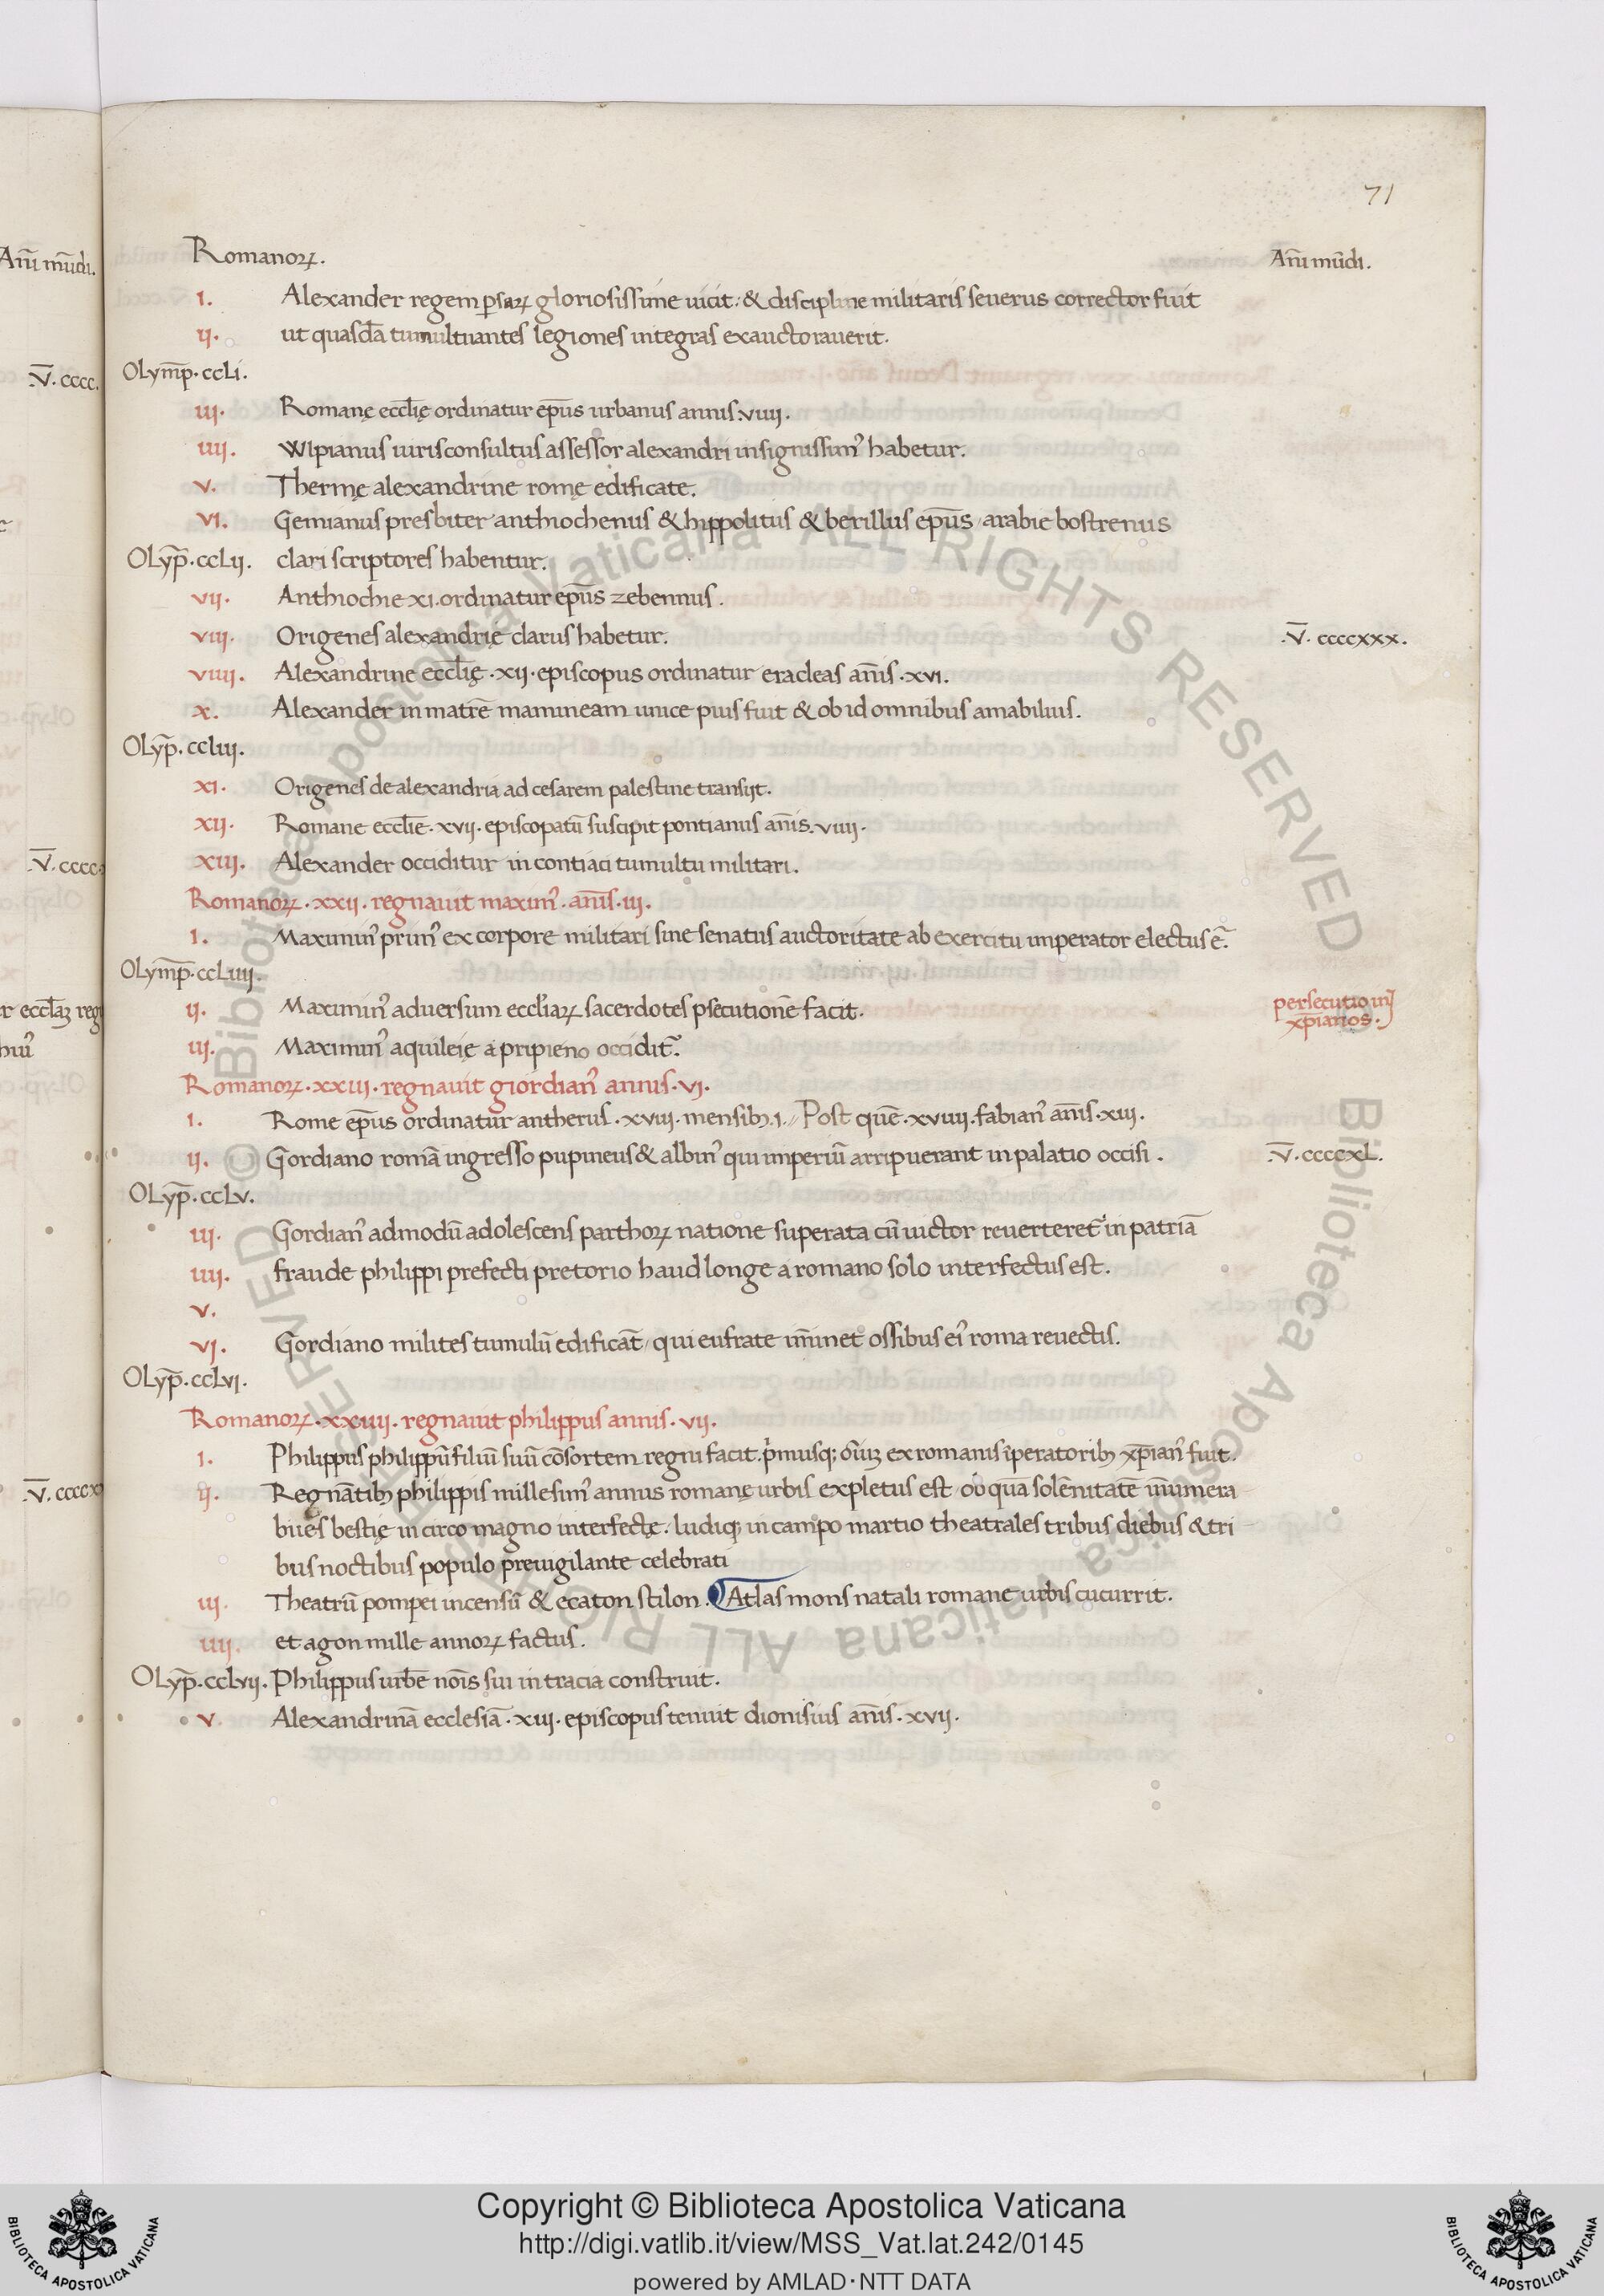 71
Romanoꝝ.
Añi mũdi.
Añi mũdi.
i. Alexander regem ꝑsaꝝ gloriosissime uicit: & discipline militaris seuerus corrector fuit
ij. ut quasdã tumultuantes legiones integras exauctorauerit.
.V̅. cccc.
Olymp̃. ccLi.
iij. Romanę eccl̃ię ordinatur ep̃us urbanus annis. viiij.
iiij. Wlpianus iurisconsultus assessor alexandri insignissim᾽ habetur.
v. Thermę alexandrine romę edificate.
vi. Gemianus presbiter anthiochenus & hippolitus & berillus ep̃us arabie bostrenus
Olyp̃. ccLij. clari scriptores habentur.
vij. Anthiochie xi. ordinatur ep̃us zebennus.
viij. Origenes alexandrię clarus habetur.
.V̅. ccccxxx.
viiij. Alexandrine eccl̃ię .xij. episcopus ordinatur eracleas añis .xvi.
x. Alexander in matrẽ mamineam unice pius fuit & ob id omnibus amabilius.
Olyp̃. ccLiij.
xi. Origenes de alexandria ad cesarem palestine transijt.
xij. Romane eccl̃ie .xvij. episcopatũ suscipit pontianus añis. viiij.
.V̅. cccc
xiij. Alexander occiditur in contiaci tumultu militari.
Romanoꝝ .xxij. regnauit maxim᾽ .añis. iij.
i. Maximin᾽ prim᾽ ex corpore militari sine senatus auctoritate ab exercitu imperator electus ẽ.
Olymp̃. ccLiiij.
r eccl̃aꝫ reg
ij. Maximin᾽ aduersum eccl̃iaꝝ sacerdotes psecutionẽ facit.
persecutio in
xp̃ianos.
iij. Maximin᾽ aquileię a pripieno occidit᷑.
Romanoꝝ .xxiij. regnauit giordian᾽ annis. vi.
i. Rome ep̃us ordinatur antherus .xviij. mensibꝫ. i. Post quẽ .xviiij. fabian᾽ añis .xiij.
ij. Gordiano romã ingresso pupineus & albin᾽ qui imperiũ arripuerant in palatio occisi.
.V̅. ccccxL.
Olyp̃. ccLv.
iij. Gordian᾽ admodũ adolescens parthoꝝ natione superata cũ uictor reuerteret᷑ in patriã
iiij. fraude philippi prefecti pretorio haud longe a romano solo interfectus est.
v.
vi. Gordiano milites tumulũ edificãt, qui eufrate im̃inet ossibus ei᾽ roma reuectis.
Olyp̃. ccLvi.
Romanoꝝ .xxiiij. regnauit philippus annis. vij.
i. Philippus philippũ filiũ suũ cõsortem regni facit. p̾musqꝫ om̃iuꝫ ex romanis ĩperatoribꝫ xp̃ian᾽ fuit.
.V̅. ccccx
ij. Regnãtibꝫ philippis millesim᾽ annus romanę urbis expletus est, ob quã solẽnitatẽ iñumera
biles bestię in circo magno interfectę. ludiqꝫ in campo martio theatrales tribus diebus & tri
bus noctibus populo preuigilante celebrati
iij. Theatrũ pompei incensũ & ecaton stilon. Atlas mons natali romane urbis cucurrit.
iiij. et agon mille annoꝝ factus.
Olyp̃. ccLvij. Philippus urbẽ nõis sui in tracia construit.
v. Alexandrinã ecclesiã .xiij. episcopus tenuit dionisius añis .xvij.
Biblioteca Apostolica Vaticana ALL RIGHTS RESERVED
© Biblioteca Apostolica Vaticana ALL RIGHTS RESERVED
Copyright © Biblioteca Apostolica Vaticana
http://digi.vatlib.it/view/MSS_Vat.lat.242/0145
powered by AMLAD·NTT DATA
BIBLIOTECA APOSTOLICA VATICANA
BIBLIOTECA APOSTOLICA VATICANA